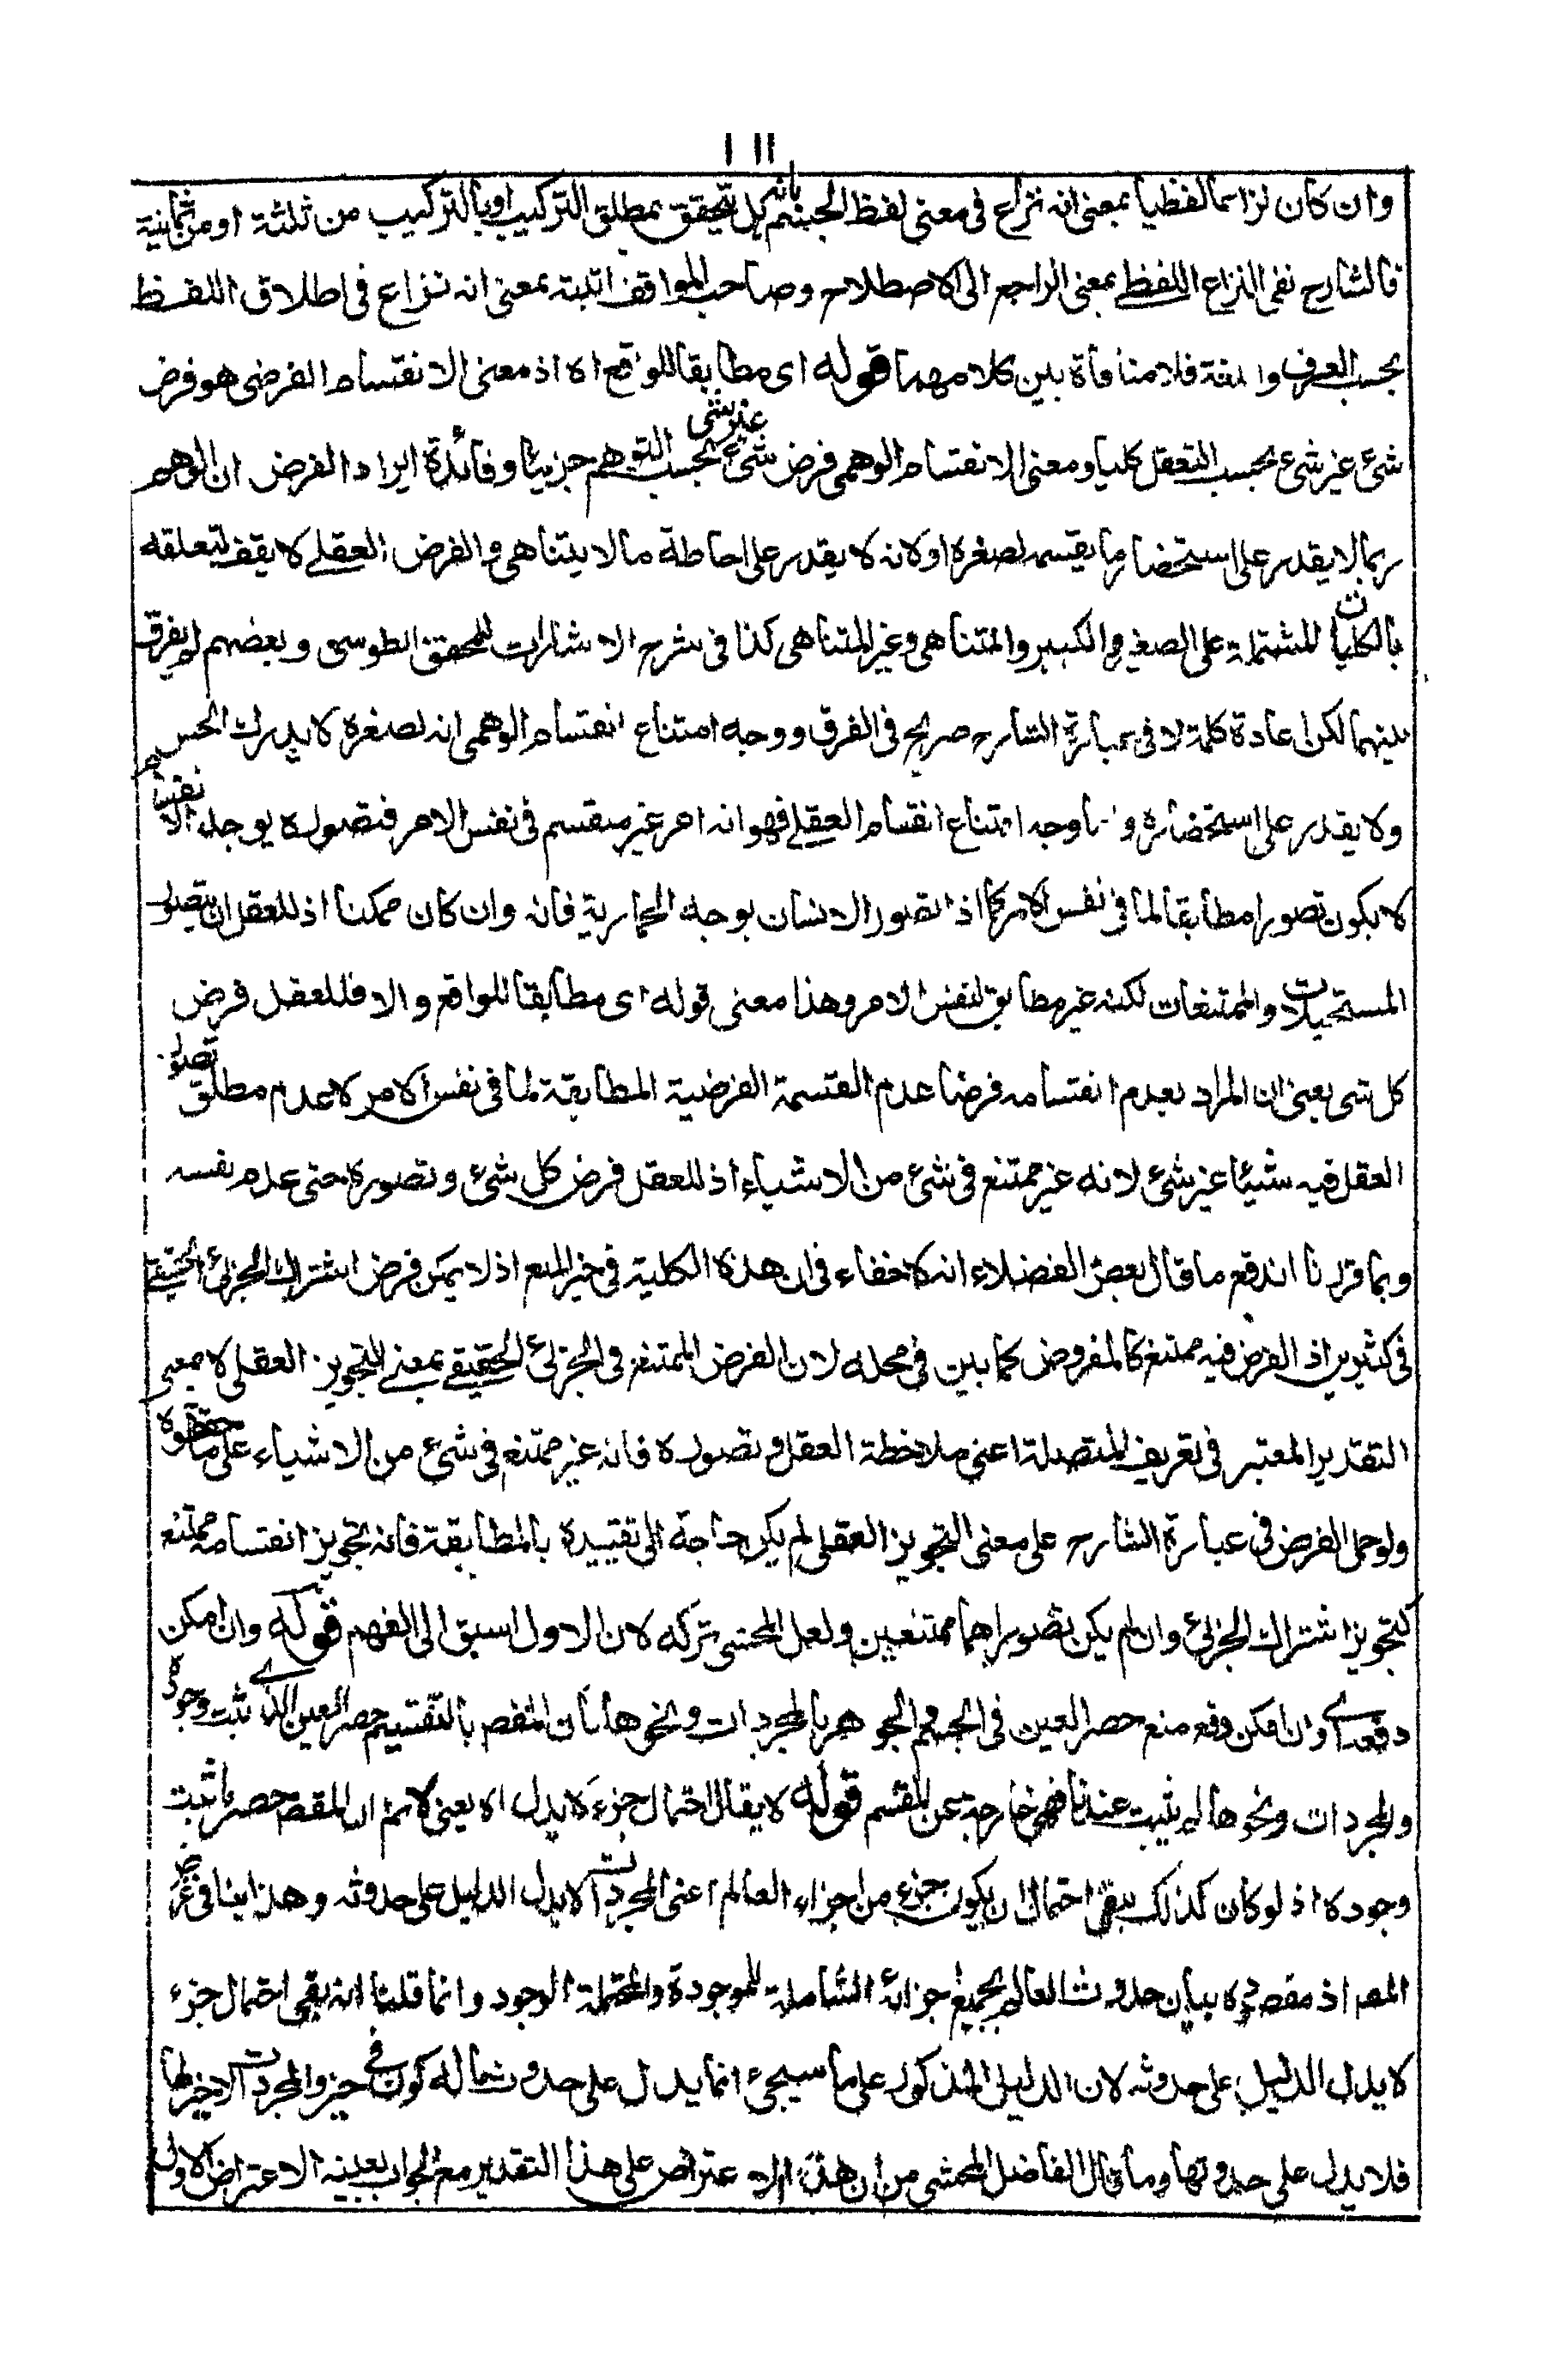 ١١١
وان كان نزاعا لفظيا بمعنى انه نزاع فى معنى لفظ الجسم بانه هل يتحقق بمطلق التركيب او بالتركيب من ثلثة او من ثمانية
فالشارح نفى النزاع اللفظى بمعنى الراجع الى الاصطلاح وصاحب المواقف اثبته بمعنى انه نزاع فى اطلاق اللفظ
بحسب العرف واللغة فلا منافاة بين كلامهما قوله اى مطابقا للواقع اه اذ معنى الانقسام الفرضى هو فرض
شئ غير شئ بحسب التعقل كليا ومعنى الانقسام الوهمى فرض شئ غير شئ بحسب التوهم جزئيا وفائدة ايراد الفرض ان الوهم
ربما لا يقدر على استحضار ما يقسمه لصغره او لانه لا يقدر على احاطة ما لا يتناهى والفرض العقلى لا يقف لتعلقه
بالكليات المشتملة على الصغير والكبير والمتناهى وغير المتناهى كذا فى شرح الاشارات للمحقق الطوسى وبعضهم لم يفرق
بينهما لكن اعادة كلمة لا فى عبارة الشارح صريح فى الفرق ووجه امتناع انقسام الوهمى انه لصغره لا يدرك الحس
ولا يقدر على استحضاره واما وجه امتناع انقسام العقلى فهو انه امر غير منقسم فى نفس الامر فتصوره بوجه الانقسام
لا يكون تصورا مطابقا لما فى نفس الامر كما اذا تصور الانسان بوجه الحمارية فانه وان كان ممكنا اذ للعقل ان يتصور
المستحيلات والممتنعات لكنه غير مطابق لنفس الامر وهذا معنى قوله اى مطابقا للواقع والا فللعقل فرض
كل شى يعنى ان المراد بعدم انقسامه فرضا عدم القسمة الفرضية المطابقة لما فى نفس الامر لا عدم مطلق تصور
العقل فيه شيئا غير شئ لانه غير ممتنع فى شئ من الاشياء اذ للعقل فرض كل شئ وتصوره حتى عدم نفسه
وبما قررنا اندفع ما قال بعض الفضلاء انه لا خفاء فى ان هذه الكلية فى حيز المنع اذ لا يمكن فرض اشتراك الجزئ الحقيقى
فى كثيرين اذ الفرض فيه ممتنع كالمفروض كما بين فى محله لان الفرض الممتنع فى الجزئ الحقيقى بمعنى التجويز العقلى لا بمعنى
التقدير المعتبر فى تعريف المتصلة اعنى ملاحظة العقل وتصوره فانه غير ممتنع فى شئ من الاشياء على ما حققوه
ولو حمل الفرض فى عبارة الشارح على معنى التجويز العقلى لم يكن حاجة الى تقييده بالمطابقة فانه تجويز انقسامه ممتنع
كتجويز اشتراك الجزئ وان لم يكن تصورهما ممتنعين ولعل المحشى تركه لان الاول اسبق الى الفهم قوله وان امكن
دفعه اى وان امكن دفع منع حصر العين فى الجسم والجوهر بالمجردات ونحوها بان المقصد بالتقسيم حصر العين الذى ثبت وجوده
والمجردات ونحوها لم يثبت عندنا فهى خارجة عن المقسم قوله لا يقال احتمال جزء لا يدل اه يعنى لا نم ان المقصد حصر ما ثبت
وجوده اذ لو كان كذلك يبقى احتمال ان يكون جزء من اجزاء العالم اعنى المجردات لا يدل الدليل على حدوثه وهذا ينافى غرض
المصـ اذ مقصوده بيان حدوث العالم بجميع اجزائه الشاملة للموجودة والمحتملة الوجود وانما قلنا انه يبقى احتمال جزء
لا يدل الدليل على حدوثه لان الدليل المذكور على ما سيجئ انما يدل على حدوث ما له كون فى حيز والمجردات لا حيز لها
فلا يدل على حدوثها وما قال الفاضل المحشى من ان هذا الاعتراض على هذا التقدير مع الجواب بعينه الاعتراض الاول